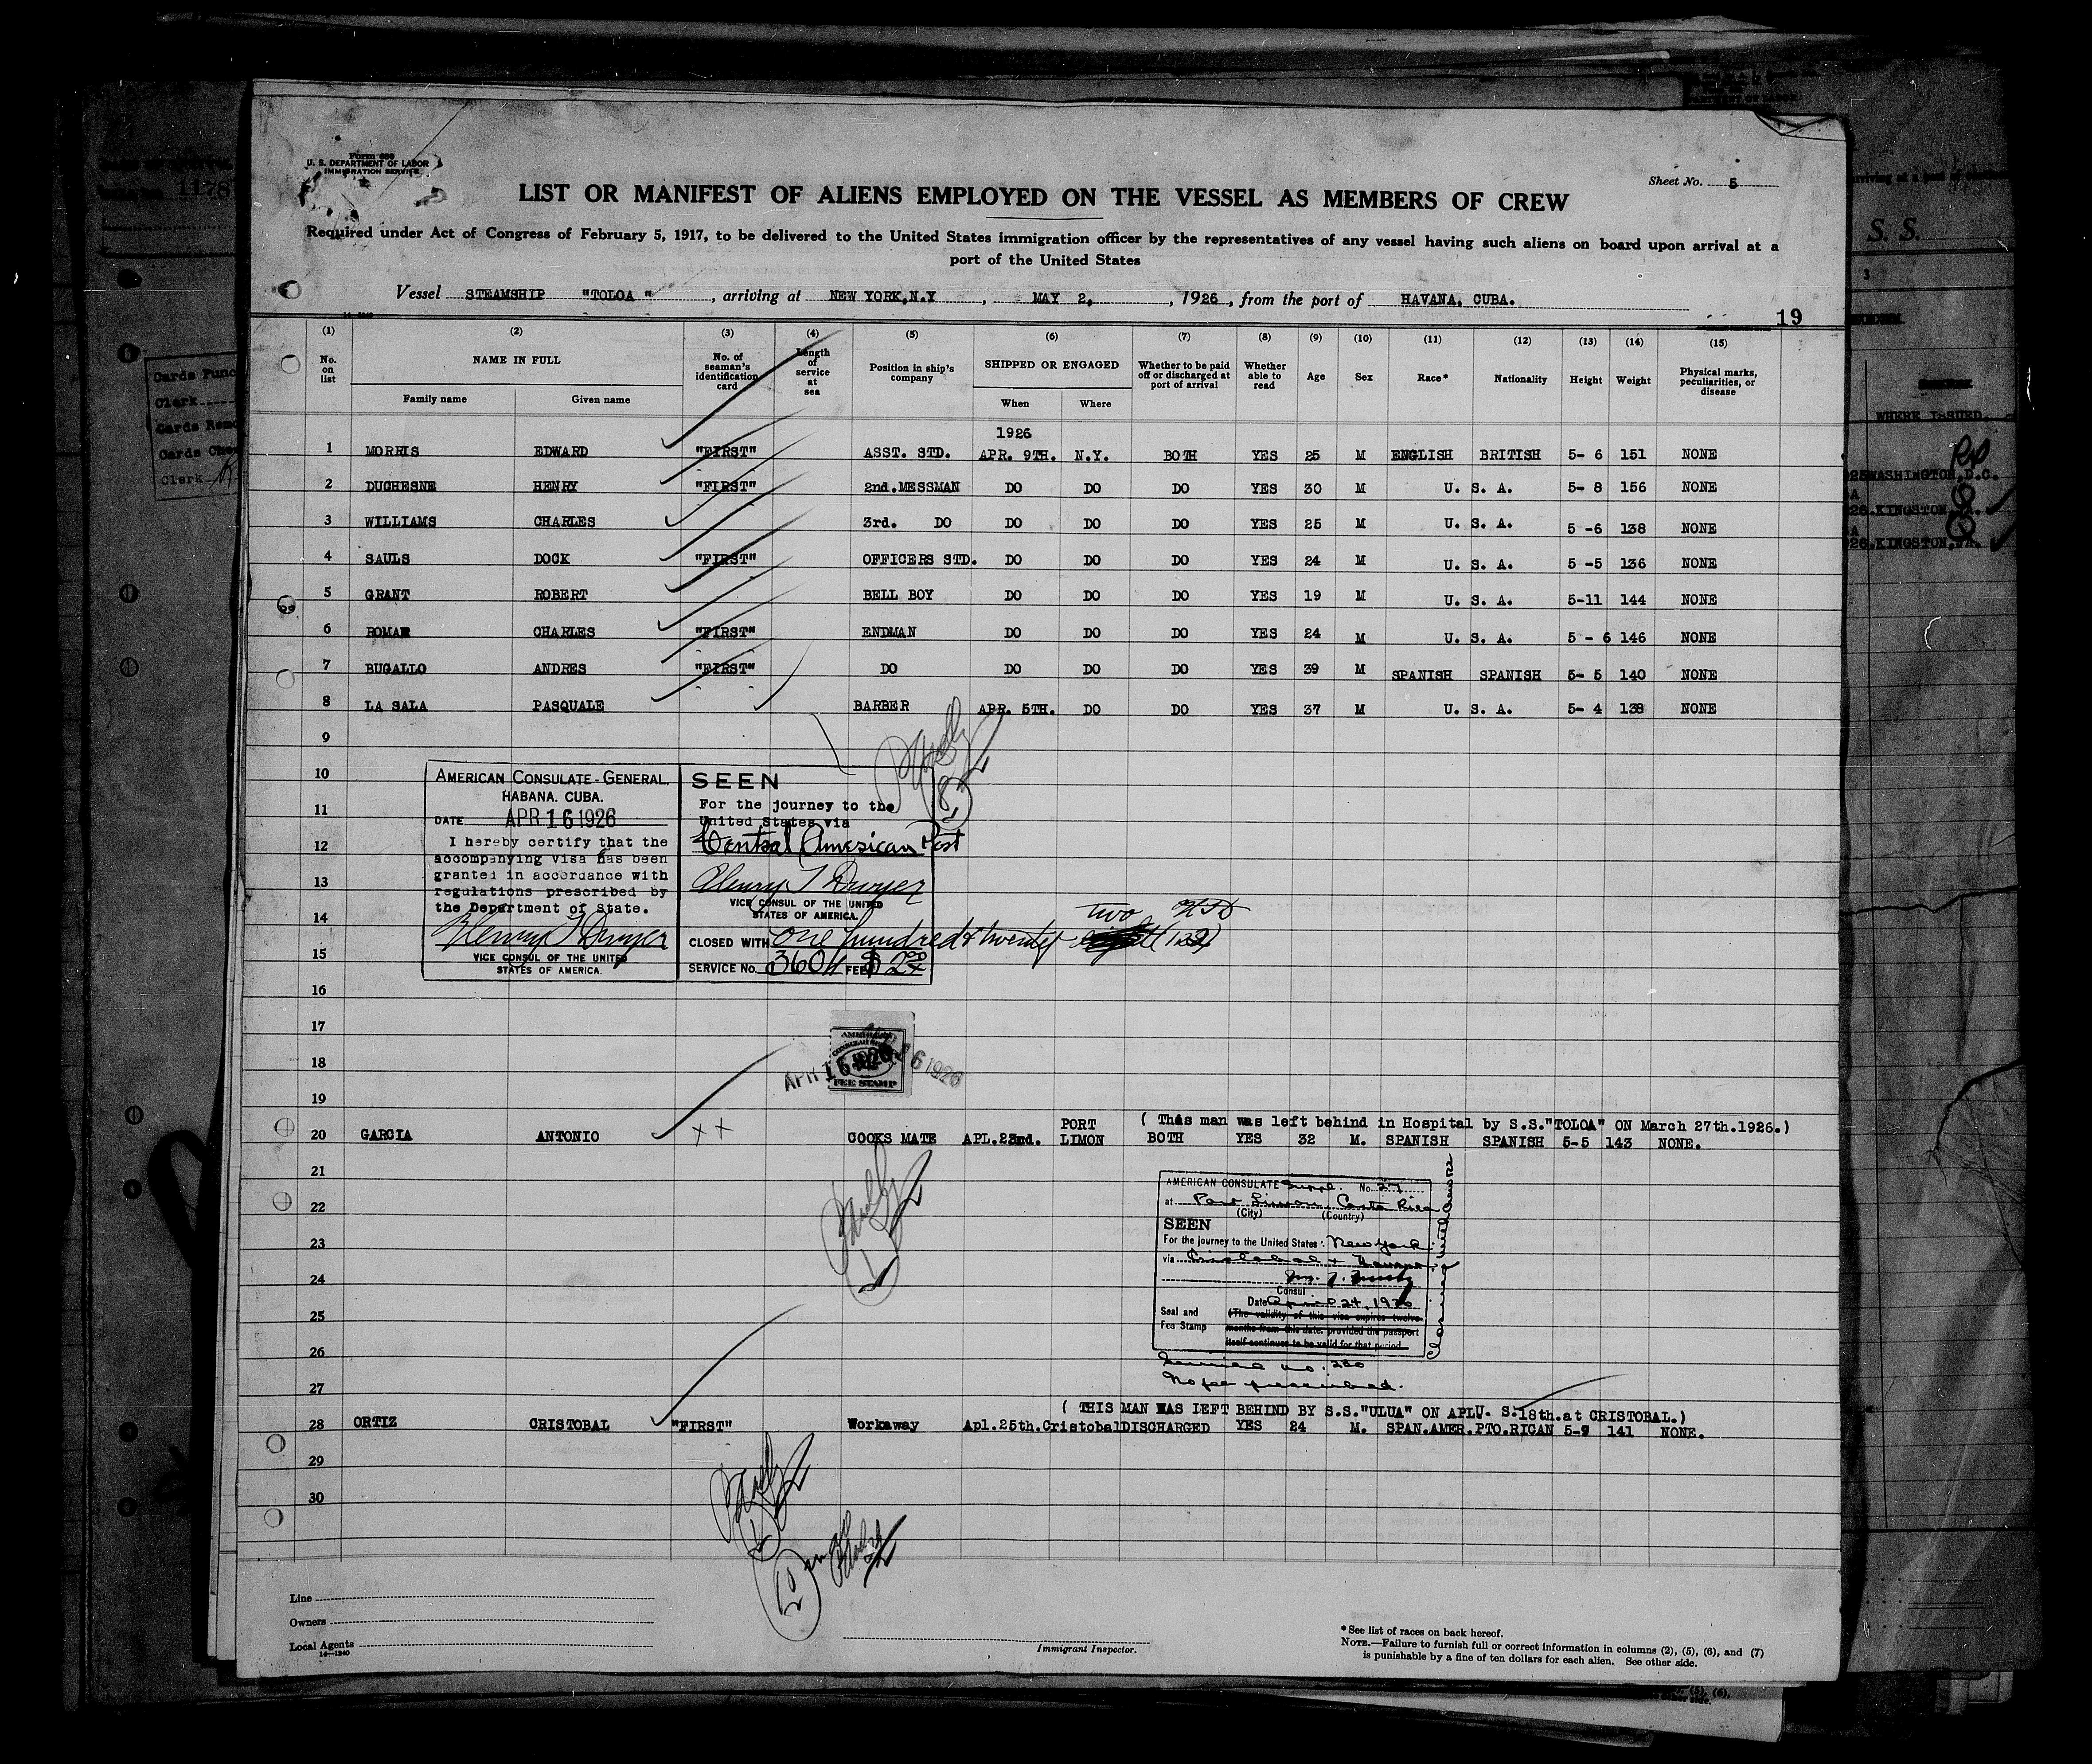 Form 689
U. S. DEPARTMENT OF LABOR
IMMIGRATION SERVICE
Sheet No. 5
LIST OR MANIFEST OF ALIENS EMPLOYED ON THE VESSEL AS MEMBERS OF CREW
Required under Act of Congress of February 5, 1917, to be delivered to the United States immigration officer by the representatives of any vessel having such aliens on board upon arrival at a
port of the United States
Vessel STEAMSHIP "TOLOA", arriving at NEW YORK,N.Y, MAY 2, 1926, from the port of HAVANA, CUBA.
19
(1) (2) (3) (4) (5) (6) (7) (8) (9) (10) (11) (12) (13) (14) (15)
No. on list NAME IN FULL No. of seaman's identification card Length of service at sea Position in ship's company SHIPPED OR ENGAGED Whether to be paid off or discharged at port of arrival Whether able to read Age Sex Race* Nationality Height Weight Physical marks, peculiarities, or disease
Family name Given name When Where
1926
1 MORRIS EDWARD "FIRST" ASST. STD. APR. 9TH. N.Y. BOTH YES 25 M ENGLISH BRITISH 5- 6 151 NONE
2 DUCHESNE HENRY "FIRST" 2nd.MESSMAN DO DO DO YES 30 M U. S. A. 5- 8 156 NONE
3 WILLIAMS CHARLES 3rd. DO DO DO DO YES 25 M U. S. A. 5 -6 138 NONE
4 SAULS DOCK "FIRST" OFFICERS STD. DO DO DO YES 24 M U. S. A. 5 -5 136 NONE
5 GRANT ROBERT BELL BOY DO DO DO YES 19 M U. S. A. 5-11 144 NONE
6 ROMAR CHARLES "FIRST" ENDMAN DO DO DO YES 24 M U. S. A. 5 - 6 146 NONE
7 BUGALLO ANDRES "FIRST" DO DO DO DO YES 39 M SPANISH SPANISH 5- 5 140 NONE
8 LA SALA PASQUALE BARBER APR. 5TH. DO DO YES 37 M U. S. A. 5- 4 138 NONE
9
10
11
12
13
14
15
16
17
18
19
AMERICAN CONSULATE-GENERAL,
HABANA. CUBA.
DATE APR 16 1926
I hereby certify that the
accompanying visa has been
granted in accordance with
regulations prescribed by
the Department of State.
Henry T Dwyer
VICE CONSUL OF THE UNITED
STATES OF AMERICA.
SEEN
For the journey to the
United States via
Central American Port
Henry T Dwyer
VICE CONSUL OF THE UNITED
STATES OF AMERICA.
two HTD
CLOSED WITH one hundred & twenty (122)
SERVICE No. 3604 FEE $ 2.00
AMERICAN
CONSULAR
FEE STAMP
APR 16 1926
PORT ( This man was left behind in Hospital by S.S."TOLOA" ON March 27th.1926.)
20 GARCIA ANTONIO XX COOKS MATE APL.22nd. LIMON BOTH YES 32 M. SPANISH SPANISH 5-5 143 NONE.
21
22
23
24
25
26
27
AMERICAN CONSULATE Suppl. No. 27
at Port Limon, Costa Rica
(City) (Country)
SEEN
For the journey to the United States: New York
via Cristobal & Havana
Consul
Date April 24, 1926
Seal and
Fee Stamp
(The validity of this visa expires twelve
months from this date, provided the passport
itself continues to be valid for that period.
Service no. 280
No fee prescribed.
( THIS MAN WAS LEFT BEHIND BY S.S."ULUA" ON APL. 18th.at CRISTOBAL.)
U. S.
28 ORTIZ CRISTOBAL "FIRST" Workaway Apl.25th. Cristobal DISCHARGED YES 24 M. SPAN.AMER. PTO.RICAN 5-9 141 NONE.
29
30
Line
Owners
Local Agents
14—1240
Immigrant Inspector.
*See list of races on back hereof.
NOTE.—Failure to furnish full or correct information in columns (2), (5), (6), and (7)
is punishable by a fine of ten dollars for each alien. See other side.
1178
Cards Punc
Clerk
Cards Remo
Cards Chec
Clerk
S. S.
3
WHERE ISSUED
WASHINGTON,D.C.
KINGSTON,JA.
KINGSTON,JA.